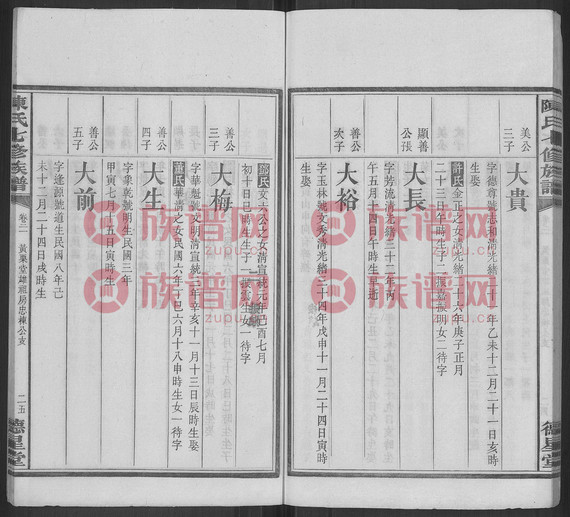 陳氏七修族譜
德星堂
美公
三子
大貴
字德尊號志和清光緒二十一年乙未十二月二十一日亥時
生娶
許氏金正之女清光緒二十六年庚子正月
二十三日午時生子二援嘉援明女二待字
顯善
公長
大長
字芳流清光緒三十二年丙
午五月十四日午時生早逝
善公
次子
大裕
字玉林號文秀清光緒三十四年戊申十一月二十四日寅時
生娶
鄒氏文元公之女清宣統元年己酉七月
初十日巳時生生子二援
生女一待字
善公
三子
大梅
字華魁號文明清宣統三年辛亥十一月十三日辰時生娶
蕭氏華清之女民國六年丁巳六月十八申時生女一待字
善公
四子
大生
字象乾號明生民國三年
甲寅十月十五日寅時生
善公
五子
大前
字逢源號道生民國八年己
未十二月二十四日戌時生
陳氏七修族譜
卷三一
黃巢堂雄祖房忠棟公支
二五
德星堂
族谱网
zupu.cn
族谱网
zupu.cn
族谱网
zupu.cn
族谱网
zupu.cn